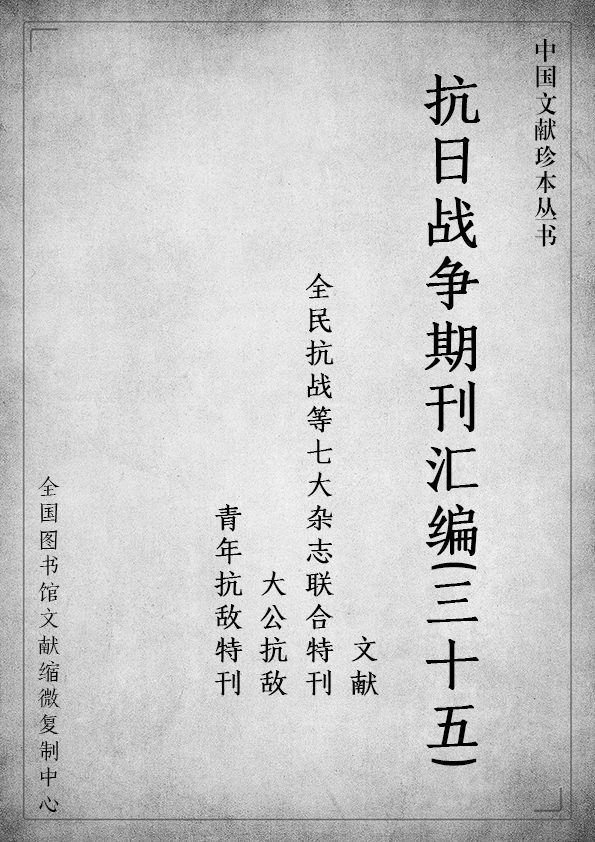 中国文献珍本丛书
抗日战争期刊汇编(三十五)
文献
全民抗战等七大杂志联合特刊
大公抗敌
青年抗敌特刊
全国图书馆文献缩微复制中心